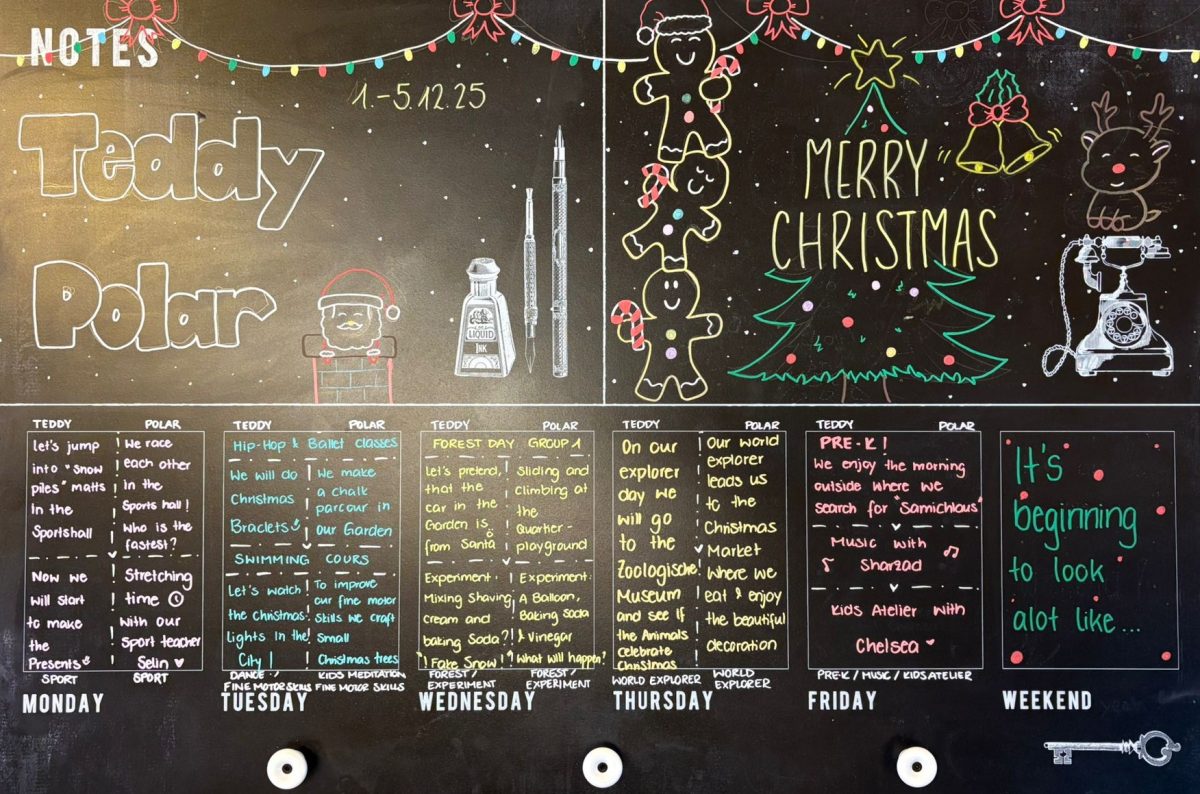 NOTES
1.-5.12.25
Teddy
Polar
LIQUID
INK
MERRY
CHRISTMAS
TEDDY
let's jump
into "snow
piles" matts
In the
Sportshall
Now we
will start
to make
the
Presents
SPORT
POLAR
We race
each other
In the
Sports hall!
Who is the
fastest?
Stretching
time
with our
Sport teacher
Selin ♥
SPORT
MONDAY
TEDDY
POLAR
Hip-Hop & Ballet classes
We will do
Christmas
Braclets
We make
a chalk
parcour in
our Garden
SWIMMING COURS
Let's watch
the Christmas
lights in the
City!
To improve
our fine motor
Skills we craft
Small
Christmas trees
DANCE /
FINE MOTOR SKILLS
KIDS MEDITATION
FINE MOTOR SKILLS
TUESDAY
TEDDY
POLAR
FOREST DAY GROUP 1
Let's pretend,
that the
car in the
Garden is
from Santa
Sliding and
Climbing at
the
Quartier-
playground
Experiment:
Mixing Shaving
cream and
baking Soda?!
"Fake Snow!"
Experiment:
A Balloon,
Baking Soda
& Vinegar
What will happen?
FOREST/
EXPERIMENT
FOREST/
EXPERIMENT
WEDNESDAY
TEDDY
On our
explorer
day we
will go
to the
Zoologische
Museum
and see if
the Animals
celebrate
Christmas
WORLD EXPLORER
POLAR
Our world
explorer
leads us
to the
Christmas
Market
where we
eat & enjoy
the beautiful
decoration
WORLD
EXPLORER
THURSDAY
TEDDY
POLAR
PRE-K!
We enjoy the morning
outside where we
search for "Samichlaus"
Music with
Sharzad
Kids Atelier with
Chelsea
PRE-K / MUSIC / KIDSATELIER
FRIDAY
It's
beginning
to look
alot like...
WEEKEND